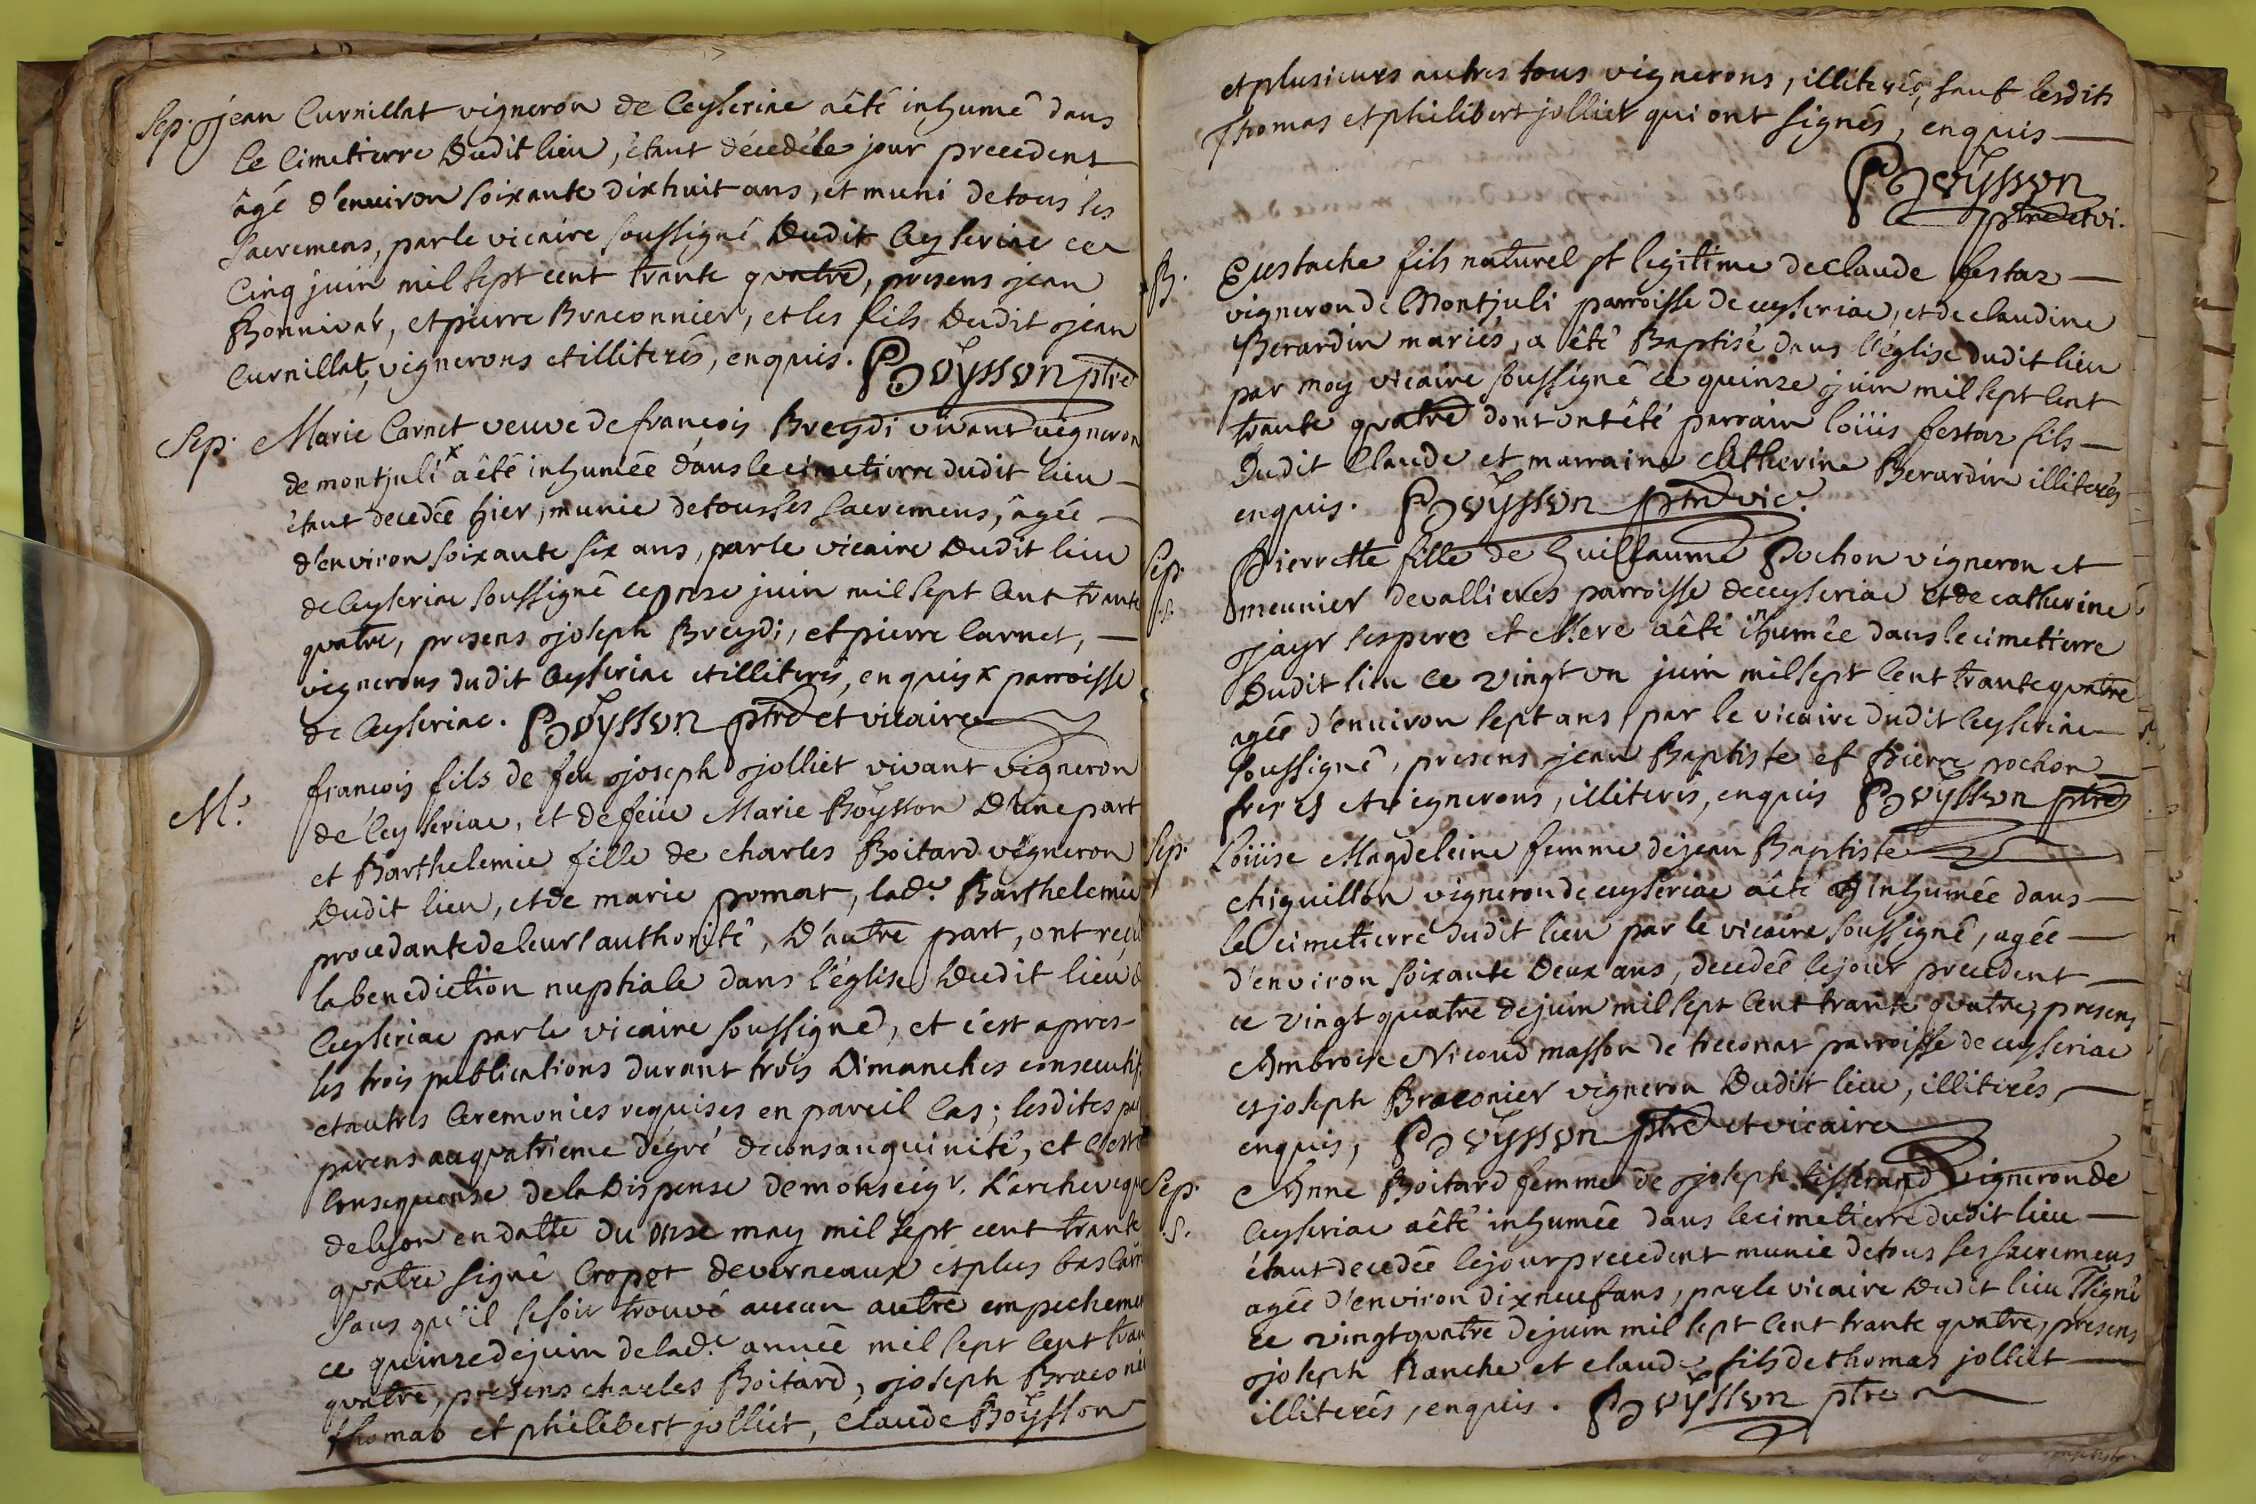 Sep. Jean Curnillat vigneron de Ceyseriac aêté inhumé dans
le Cimetierre Dudit lieu, êtant décédé le jour precedent
âgé d'environ soixante dixhuit ans, et muni de tous les
Sacremens, par le vicaire soussigné Dudit Ceyseriac ce
Cinq juin mil sept cent trante quatre, presens jean
Bonnivat, et pierre Braconnier, et les fils Dudit Jean
Curnillat, vignerons et illiterés, enquis. Boÿsson ptre
Sep. Marie Carnet veuve de françois Breydi vivant vigneron
de montjuli x aêté inhumée dans le cimetierre dudit lieu
êtant decedée hier, munie de tous les Sacremens, âgée
d'environ soixante six ans, par le vicaire Dudit lieu
de Ceyseriac soussigné ce onze juin mil sept Cent trante
quatre, presens Joseph Breydi, et pierre Carnet,
vignerons dudit Ceyseriac et illiterés, enquis x parroisse
de Ceyseriac. Boÿsson ptre et vicaire
M.
françois fils de feu Joseph Jolliet vivant vigneron
de Ceyseriac, et de feüe Marie Boÿsson D'une part
et Barthelemie fille de charles Boitard vigneron
Dudit lieu, et de marie pomat, lad.e Barthelemie
procedante de leurs authorité, D'autre part, ont reçu
la benediction nuptiale dans l'église Dudit lieu d
Ceyseriac par le vicaire soussigné, et c'est apres
les trois publications durant trois Dimanches consecutif
et autres Ceremonies requises en pareil Cas; lesdites par
parens au quatrieme dégré de consanguinité, et c'est e
Consequense de la Dispense de monseigr. L'archeveque
de lyon en datte du onze may mil sept cent trante
quatre signé Cropet de varneaux et plus bas Carr
Sans qu'il se soit trouvé aucun autre empecheme
ce quinze de juin de lad.e année mil sept Cent tran
quatre, presens charles Boitard, Joseph Braconie
thomas et philibert jolliet, Claude Boÿsson
et plusieurs autres tous vignerons, illiterés, sauf lesdits
Thomas et philibert jolliet qui ont signés, enquis
Boÿsson
ptre et vi.
B. Eustache fils naturel et legitime de Claude festaz
vigneron de Montjuli parroisse de ceyseriac, et de claudine
Berardin mariés, a êté Baptisé dans l'église dudit lieu
par moy vicaire soussigné ce quinze juin mil sept Cent
trante quatre dont ont êté parrain loüis festaz fils
Dudit Claude et marraine Catherine Berardin illiterés
enquis. Boÿsson ptre vic.
Sep. Pierrette fille de Guillaume Pochon vigneron et
meunier de vallieres parroisse de ceyseriac et de catherine
Jayr ses pere et Mere aêté inhumée dans le cimetierre
Dudit lieu ce vingt un juin mil sept Cent trante quatre
agée d'environ sept ans, par le vicaire dudit Ceyseriac
soussigné, presens jean Baptiste et Pierre pochon
freres et vignerons, illiterés, enquis Boÿsson ptre
Sep. Loüise Magdeleine femme de jean Baptiste
Chiquillon vigneron de ceyseriac aêté inhumée dans
le Cimetierre dudit lieu par le vicaire soussigné, agée
d'environ soixante Deux ans, decedée le jour precedent
ce vingt quatre de juin mil sept Cent trante quatre, presens
Ambroise Nicoud masson de treconat parroisse de ceyseriac
et joseph Braconier vigneron Dudit lieu, illiterés,
enquis, Boÿsson ptre et vicaire
Sep. Anne Boitard femme de Joseph tisserand vigneron de
S. Ceyseriac aêté inhumée dans le cimetierre dudit lieu
êtant decedée le jour precedent munie de tous ses sacremens
agée d'environ dixneuf ans, par le vicaire Dudit lieu signé
ce vingt quatre de juin mil sept Cent trante quatre, presens
Joseph Ranche et claude fils de thomas jolliet
illiterés, enquis. Boÿsson ptre